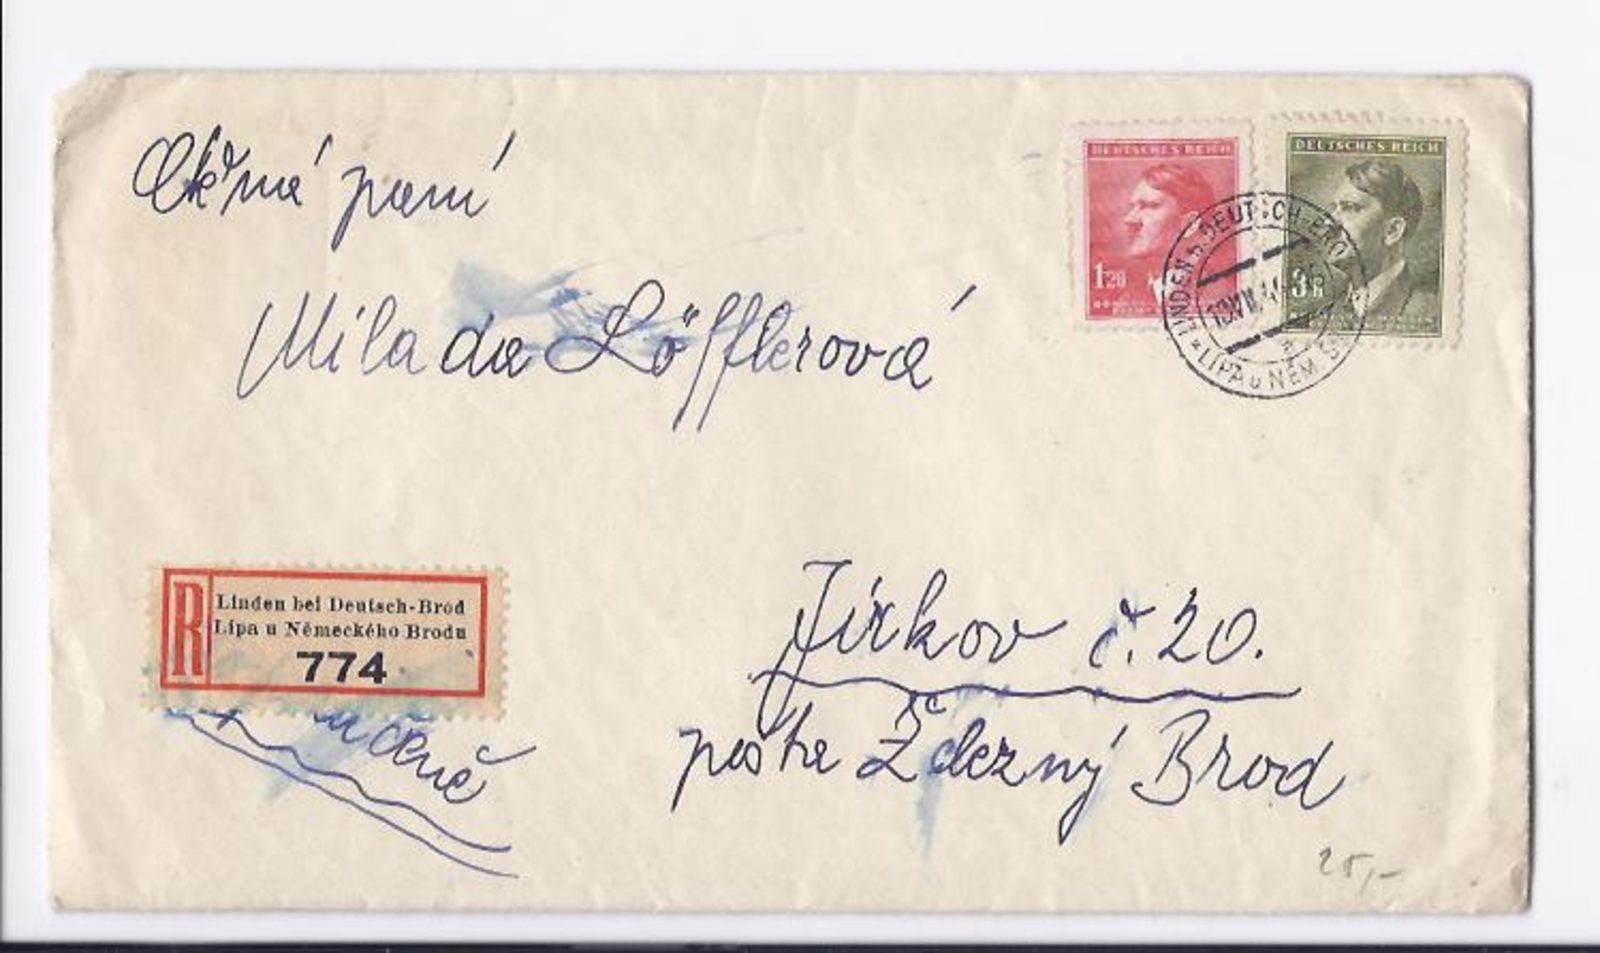 paní
DEUTSCHES REICH
DEUTSCHES REICH
1.20
3 K
LINDEN b. DEUTSCH-BROD
LÍPA u NĚM.
Milada Löfflerová
R
Linden bei Deutsch-Brod
Lípa u Německého Brodu
774
Jirkov č. 20.
pošta Železný Brod
25,-